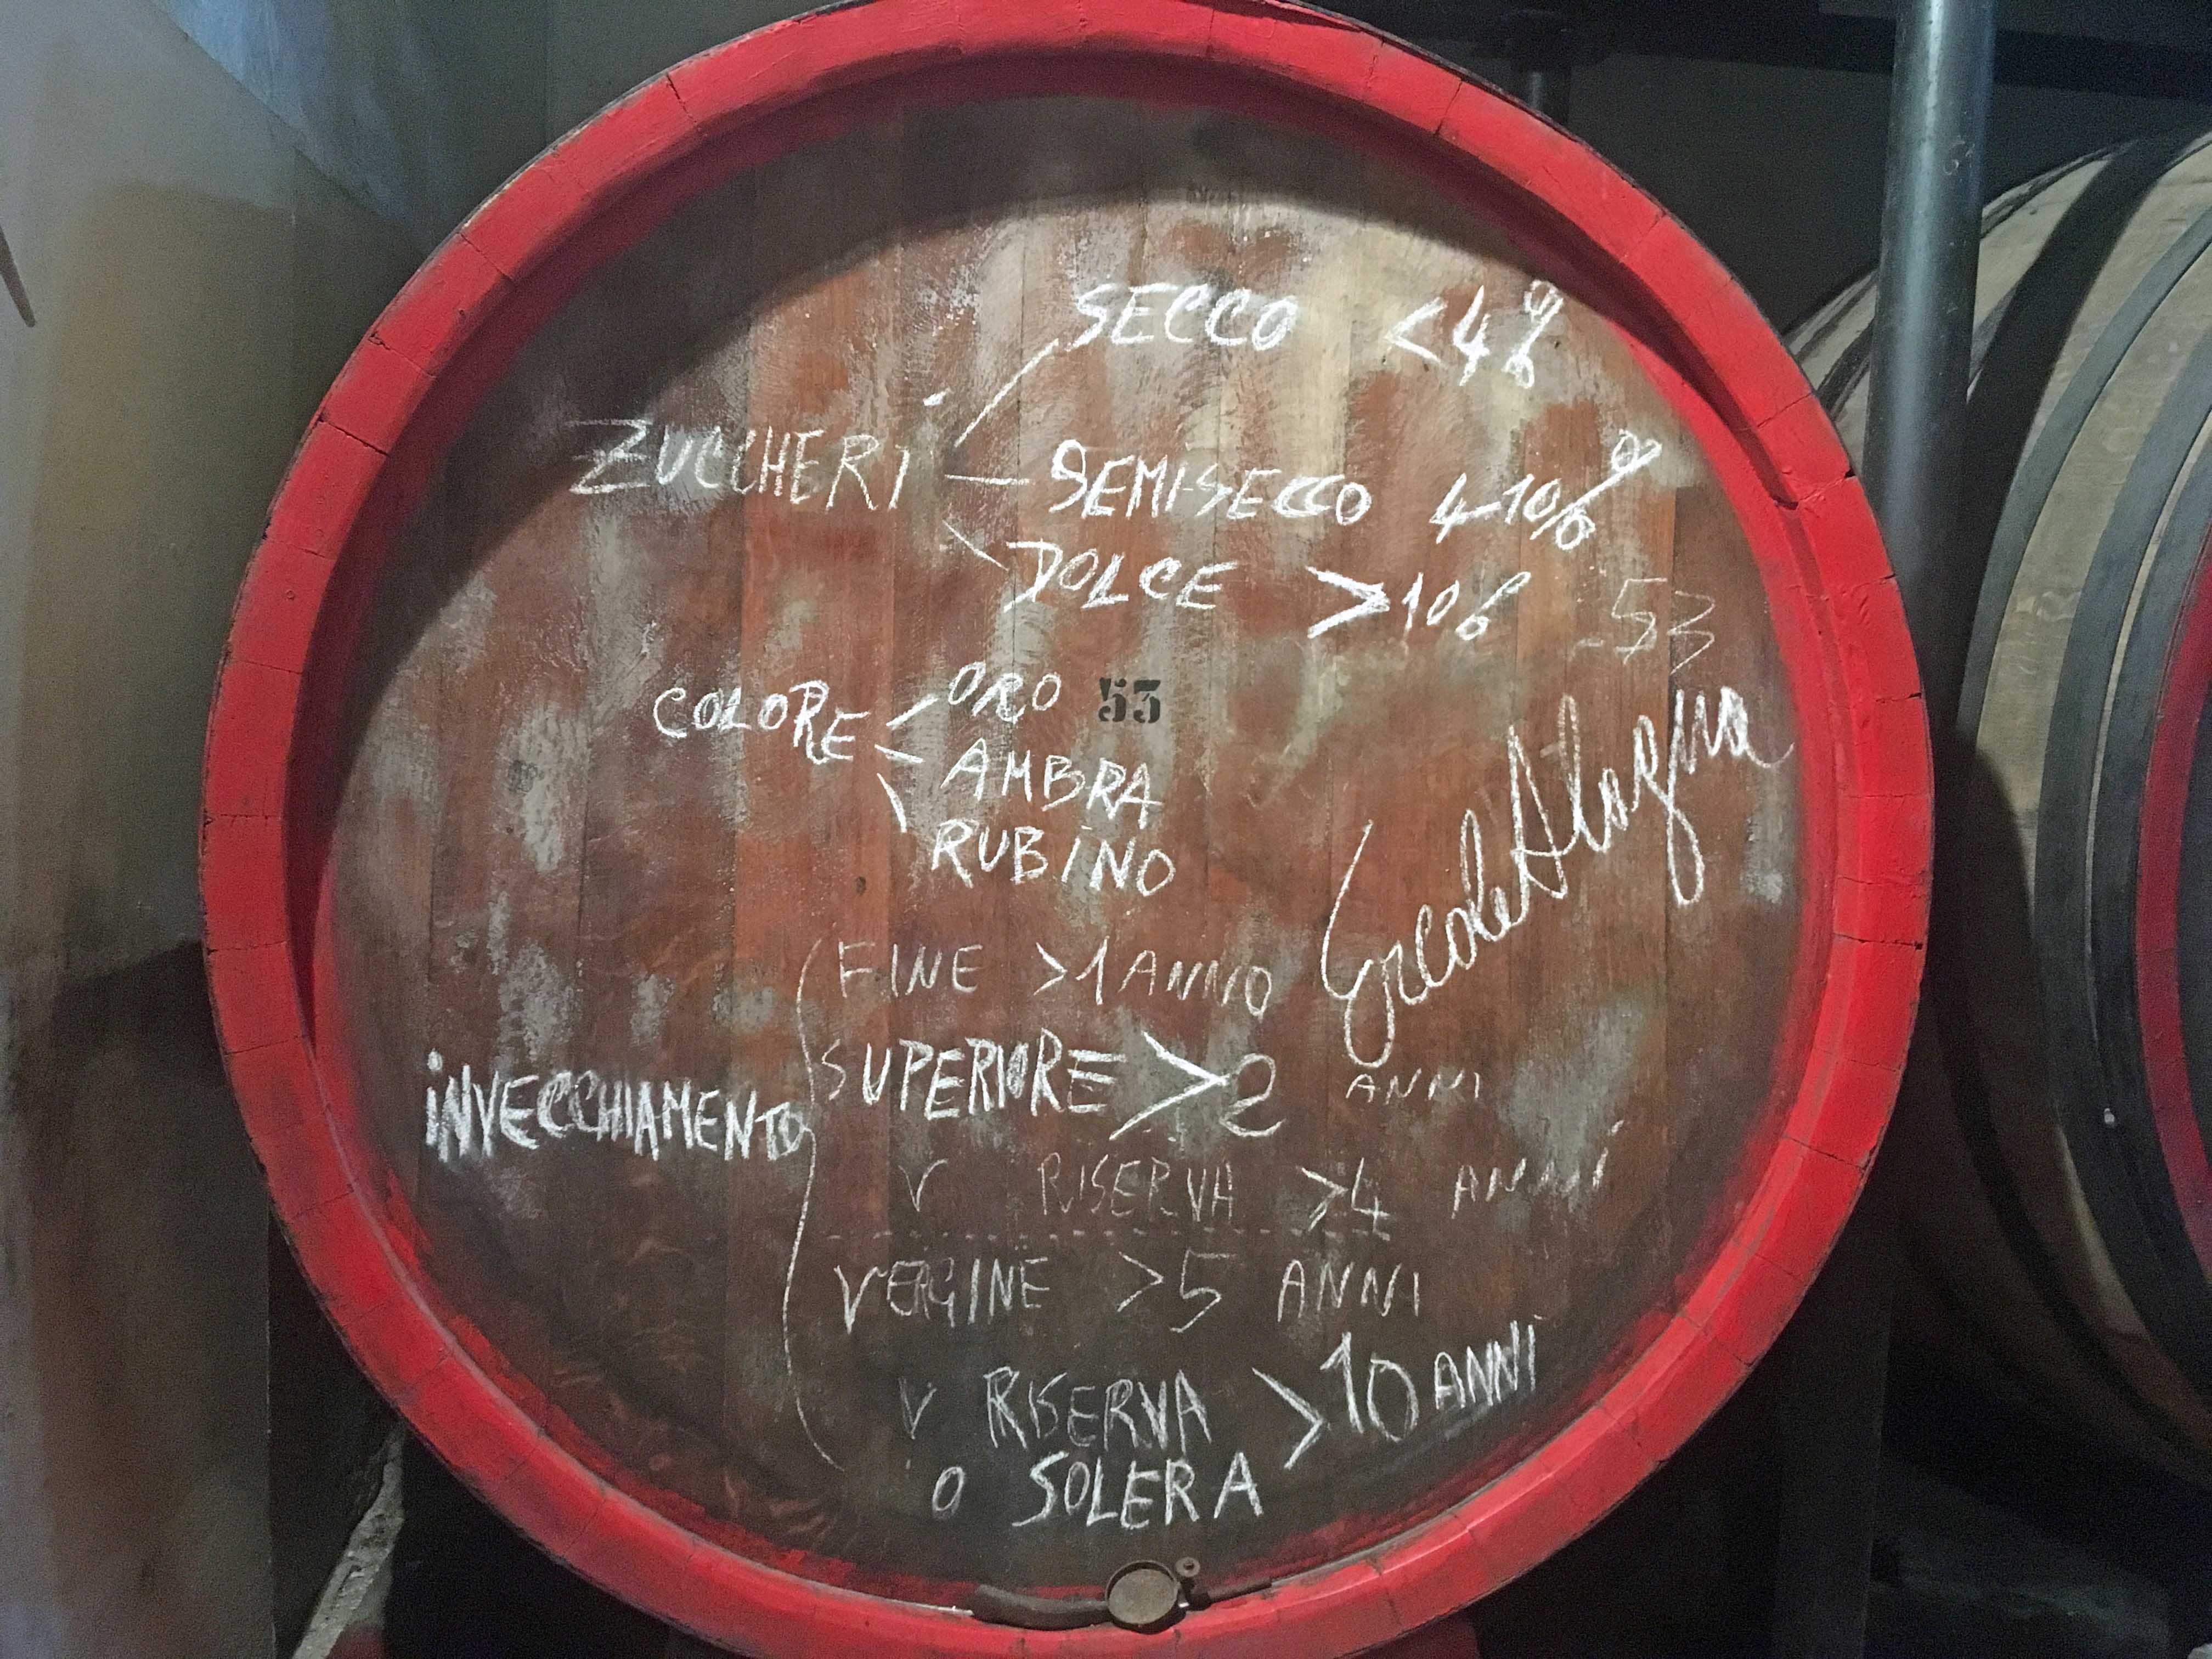 SECCO <4%
ZUCCHERI SEMI-SECCO 4-10%
DOLCE >10%
53
COLORE ORO 53
AMBRA
RUBINO
Ercole Alagna
FINE >1 ANNO
SUPERIORE >2 ANNI
INVECCHIAMENTO
V RISERVA >4 ANNI
VERGINE >5 ANNI
V RISERVA >10 ANNI
O SOLERA